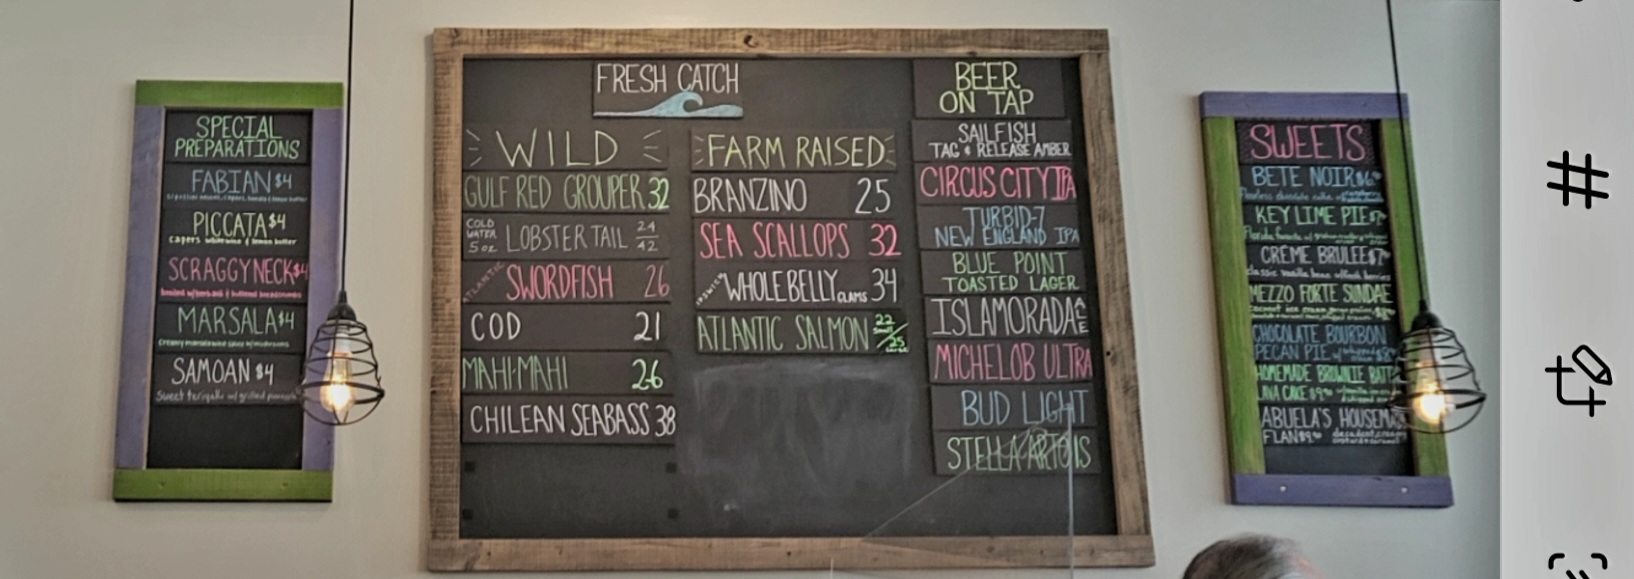 SPECIAL
PREPARATIONS
FABIAN $4
PICCATA $4
capers white wine & lemon butter
SCRAGGY NECK $4
MARSALA $4
Creamy marsala wine sauce w/ mushrooms
SAMOAN $4
Sweet teriyaki w/ grilled pineapple
FRESH CATCH
WILD
GULF RED GROUPER 32
COLD WATER 5oz LOBSTER TAIL 24/42
ATLANTIC SWORDFISH 26
COD 21
MAHI-MAHI 26
CHILEAN SEABASS 38
FARM RAISED
BRANZINO 25
SEA SCALLOPS 32
IPSWICH WHOLE BELLY CLAMS 34
ATLANTIC SALMON 22 small/25 large
BEER
ON TAP
SAILFISH
TAG & RELEASE AMBER
CIRCUS CITY IPA
TURBID-7
NEW ENGLAND IPA
BLUE POINT
TOASTED LAGER
ISLAMORADA ALE
MICHELOB ULTRA
BUD LIGHT
STELLA ARTOIS
SWEETS
BETE NOIR
Flourless chocolate cake
KEY LIME PIE
CRÈME BRULEE
classic vanilla bean w/fresh berries
MEZZO FORTE SUNDAE
CHOCOLATE BOURBON
PECAN PIE
HOMEMADE BROWNIE BATT
LAVA CAKE
ABUELA'S HOUSEMA
FLAN